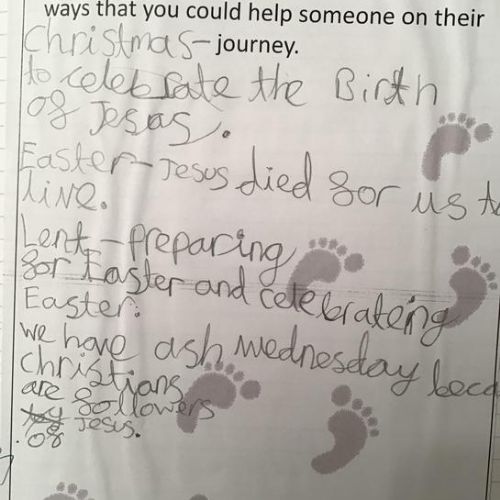 ways that you could help someone on their
Christmas- journey.
to celebrate the Birth
of Jesas.
Easter-Jesus died for us to
live.
Lent-preparing
for Easter and celebrateing
Easter.
we have ash wednesday beca
Christians
are followers
of Jesus.